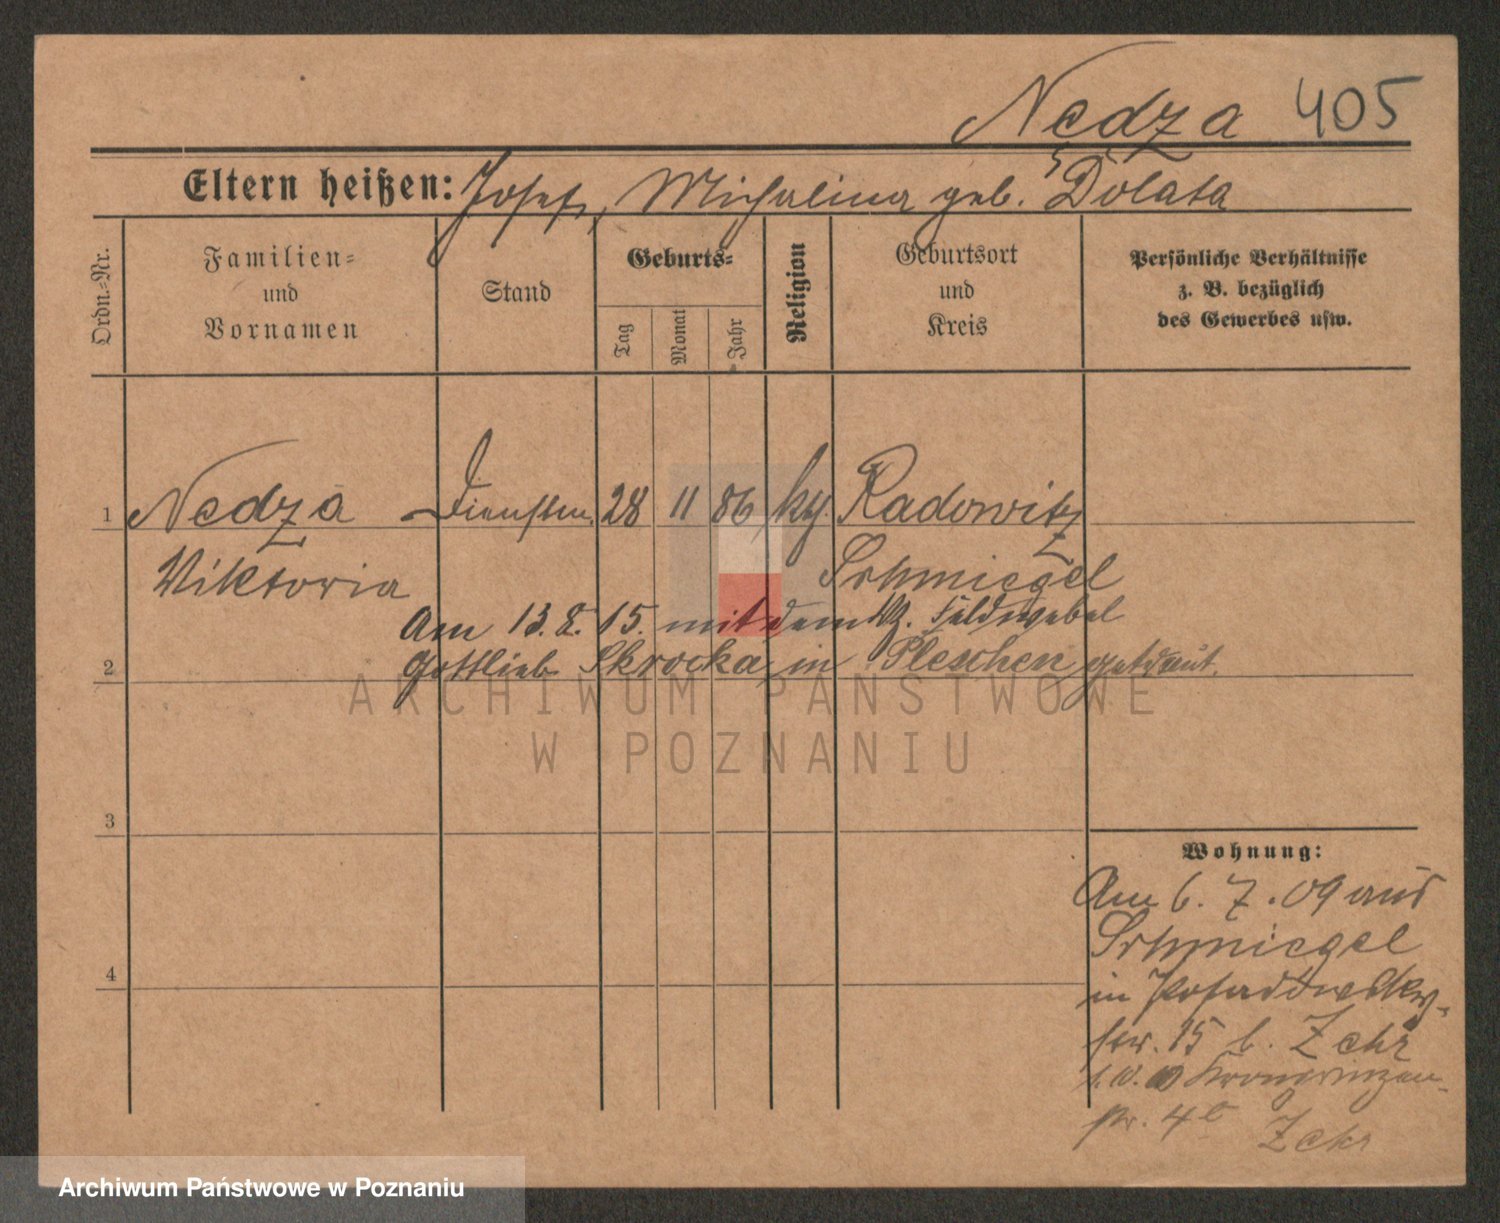 Nedza 405
Eltern heißen: Josef, Michalina geb. Dolata
Ordn.-Nr.
Familien-
und
Vornamen
Stand
Geburts-
Tag
Monat
Jahr
Religion
Geburtsort
und
Kreis
Persönliche Verhältnisse
z. B. bezüglich
des Gewerbes usw.
1 Nedza Dienstm. 28 11 86 Radowitz
Viktoria Schmiegel
Am 13. 8. 15. mit dem Feldwebel
2 Gottlieb Skrocka in Pleschen getraut.
ARCHIWUM PAŃSTWOWE
W POZNANIU
3
Wohnung:
Am 6. 7. 09 aus
Schmiegel
4
in Posadowsky-
str. 15 b. Zchr
Kronprinzen-
str. 4 Zchr
Archiwum Państwowe w Poznaniu